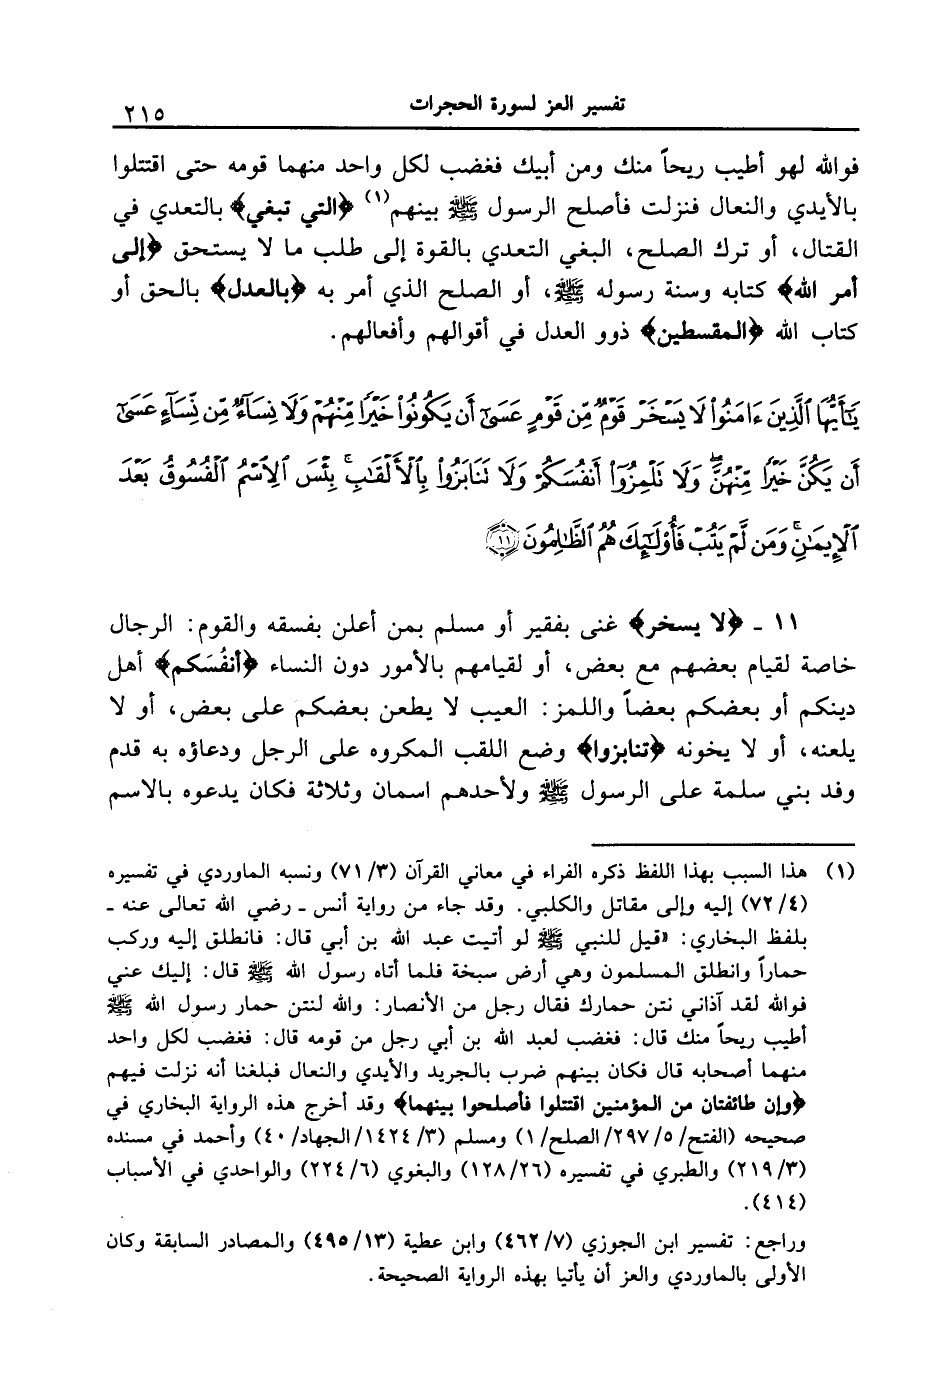 تفسير العز لسورة الحجرات ٢١٥
فوالله لهو أطيب ريحاً منك ومن أبيك فغضب لكل واحد منهما قومه حتى اقتتلوا
بالأيدي والنعال فنزلت فأصلح الرسول ﷺ بينهم(١) ﴿التي تبغي﴾ بالتعدي في
القتال، أو ترك الصلح، البغي التعدي بالقوة إلى طلب ما لا يستحق ﴿إلى
أمر الله﴾ كتابه وسنة رسوله ﷺ، أو الصلح الذي أمر به ﴿بالعدل﴾ بالحق أو
كتاب الله ﴿المقسطين﴾ ذوو العدل في أقوالهم وأفعالهم.
يَٰٓأَيُّهَا ٱلَّذِينَ ءَامَنُوا۟ لَا يَسْخَرْ قَوْمٌ مِّن قَوْمٍ عَسَىٰٓ أَن يَكُونُوا۟ خَيْرًا مِّنْهُمْ وَلَا نِسَآءٌ مِّن نِّسَآءٍ عَسَىٰٓ
أَن يَكُنَّ خَيْرًا مِّنْهُنَّ ۖ وَلَا تَلْمِزُوٓا۟ أَنفُسَكُمْ وَلَا تَنَابَزُوا۟ بِٱلْأَلْقَٰبِ ۖ بِئْسَ ٱلِٱسْمُ ٱلْفُسُوقُ بَعْدَ
ٱلْإِيمَٰنِ ۚ وَمَن لَّمْ يَتُبْ فَأُو۟لَٰٓئِكَ هُمُ ٱلظَّٰلِمُونَ ﴿١١﴾
١١ - ﴿لا يسخر﴾ غنى بفقير أو مسلم بمن أعلن بفسقه والقوم: الرجال
خاصة لقيام بعضهم مع بعض، أو لقيامهم بالأمور دون النساء ﴿أنفُسَكم﴾ أهل
دينكم أو بعضكم بعضاً واللمز: العيب لا يطعن بعضكم على بعض، أو لا
يلعنه، أو لا يخونه ﴿تنابزوا﴾ وضع اللقب المكروه على الرجل ودعاؤه به قدم
وفد بني سلمة على الرسول ﷺ ولأحدهم اسمان وثلاثة فكان يدعوه بالاسم
(١) هذا السبب بهذا اللفظ ذكره الفراء في معاني القرآن (٧١/٣) ونسبه الماوردي في تفسيره
(٧٢/٤) إليه وإلى مقاتل والكلبي. وقد جاء من رواية أنس - رضي الله تعالى عنه -
بلفظ البخاري: «قيل للنبي ﷺ لو أتيت عبد الله بن أبي قال: فانطلق إليه وركب
حماراً وانطلق المسلمون وهي أرض سبخة فلما أتاه رسول الله ﷺ قال: إليك عني
فوالله لقد آذاني نتن حمارك فقال رجل من الأنصار: والله لنتن حمار رسول الله ﷺ
أطيب ريحاً منك قال: فغضب لعبد الله بن أبي رجل من قومه قال: فغضب لكل واحد
منهما أصحابه قال فكان بينهم ضرب بالجريد والأيدي والنعال فبلغنا أنه نزلت فيهم
﴿وإن طائفتان من المؤمنين اقتتلوا فأصلحوا بينهما﴾ وقد أخرج هذه الرواية البخاري في
صحيحه (الفتح/٢٩٧/٥/الصلح/١) ومسلم (١٤٢٤/٣/الجهاد/٤٠) وأحمد في مسنده
(٢١٩/٣) والطبري في تفسيره (١٢٨/٢٦) والبغوي (٢٢٤/٦) والواحدي في الأسباب
(٤١٤).
وراجع: تفسير ابن الجوزي (٤٦٢/٧) وابن عطية (٤٩٥/١٣) والمصادر السابقة وكان
الأولى بالماوردي والعز أن يأتيا بهذه الرواية الصحيحة.